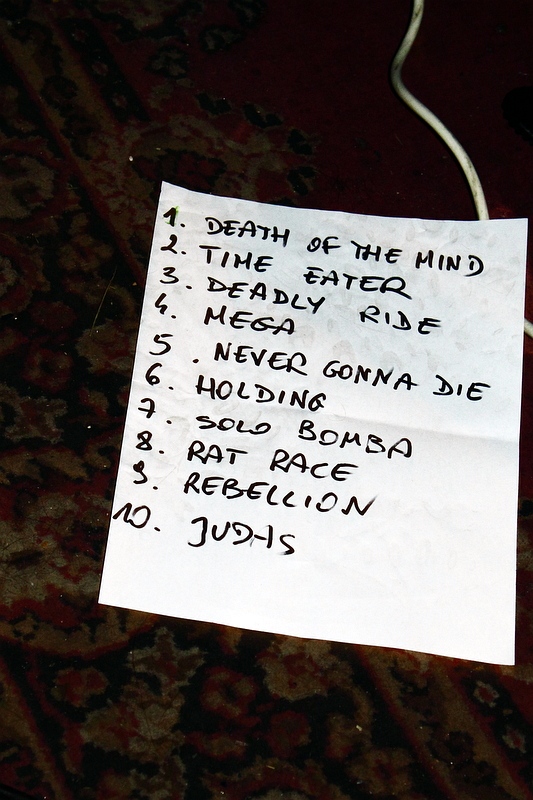 1. DEATH OF THE MIND
2. TIME EATER
3. DEADLY RIDE
4. MEGA
5. NEVER GONNA DIE
6. HOLDING
7. SOLO BOMBA
8. RAT RACE
9. REBELLION
10. JUDAS